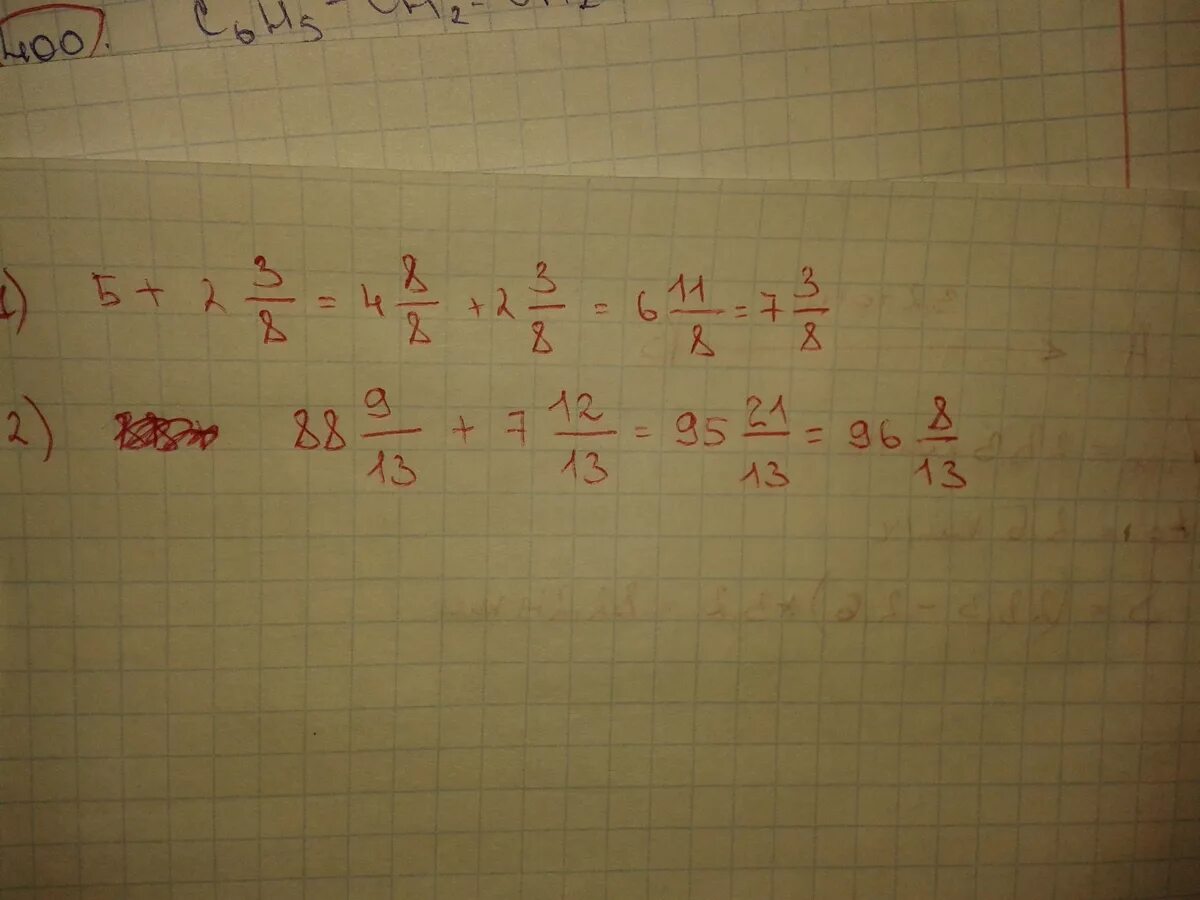 400.
C₆H₅ - CH₂ - CH₂
1) 5 + 2 3/8 = 4 8/8 + 2 3/8 = 6 11/8 = 7 3/8
2) 88 9/13 + 7 12/13 = 95 21/13 = 96 8/13